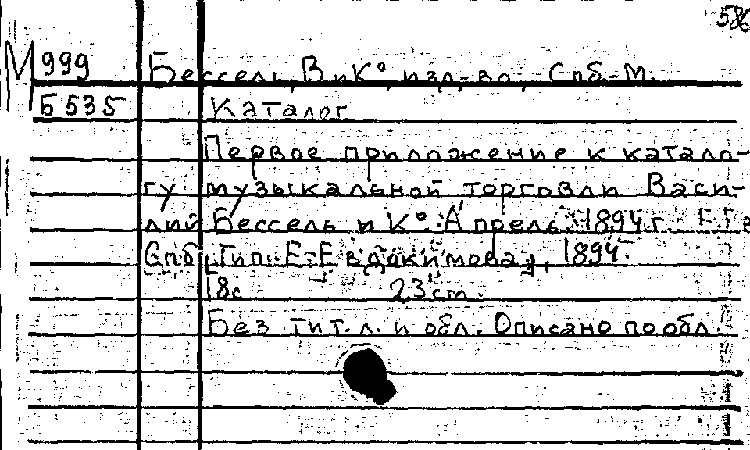 586
М 999 Бессель, В и К°, изд-во, Спб-М.
Б 535 Каталог
Первое приложение к катало-
гу музыкальной торговли Васи-
лий Бессель и К°. Апрель 1894 г.
Спб, Тип. Евдокимова, 1894.
18с 23 cm.
Без тит. л. и обл. Описано по обл.